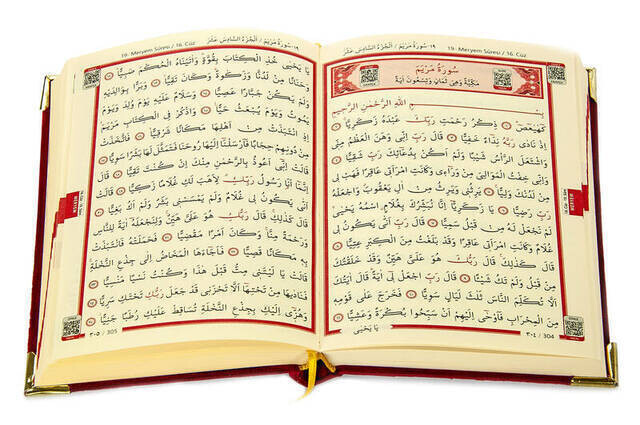 ١٩-سُورَةُ مَرْيَمَ / اَلْجُزْءُ السَّادِسَ عَشَرَ 19. Meryem Sûresi / 16. Cüz
سُورَةُ مَرْيَمَ
مَكِّيَّةٌ وَهِيَ ثَمَانٍ وَتِسْعُونَ اٰيَةً
بِسْمِ اللّٰهِ الرَّحْمٰنِ الرَّحِيمِ
كٓهٰيٰعٓصٓ ۝ ذِكْرُ رَحْمَتِ رَبِّكَ عَبْدَهُ زَكَرِيَّا ۝
اِذْ نَادٰى رَبَّهُ نِدَٓاءً خَفِيًّا ۝ قَالَ رَبِّ اِنّ۪ي وَهَنَ الْعَظْمُ مِنّ۪ي
وَاشْتَعَلَ الرَّأْسُ شَيْبًا وَلَمْ اَكُنْ بِدُعَٓائِكَ رَبِّ شَقِيًّا ۝
وَاِنّ۪ي خِفْتُ الْمَوَالِيَ مِنْ وَرَٓاء۪ي وَكَانَتِ امْرَاَت۪ي عَاقِرًا فَهَبْ ل۪ي
مِنْ لَدُنْكَ وَلِيًّا ۝ يَرِثُن۪ي وَيَرِثُ مِنْ اٰلِ يَعْقُوبَ وَاجْعَلْهُ
رَبِّ رَضِيًّا ۝ يَا زَكَرِيَّٓا اِنَّا نُبَشِّرُكَ بِغُلَامٍۨ اسْمُهُ يَحْيٰى
لَمْ نَجْعَلْ لَهُ مِنْ قَبْلُ سَمِيًّا ۝ قَالَ رَبِّ اَنّٰى يَكُونُ ل۪ي
غُلَامٌ وَكَانَتِ امْرَاَت۪ي عَاقِرًا وَقَدْ بَلَغْتُ مِنَ الْكِبَرِ عِتِيًّا ۝
قَالَ كَذٰلِكَ قَالَ رَبُّكَ هُوَ عَلَيَّ هَيِّنٌ وَقَدْ خَلَقْتُكَ
مِنْ قَبْلُ وَلَمْ تَكُ شَيْـًٔا ۝ قَالَ رَبِّ اجْعَلْ ل۪ٓي اٰيَةً قَالَ اٰيَتُكَ
اَلَّا تُكَلِّمَ النَّاسَ ثَلٰثَ لَيَالٍ سَوِيًّا ۝ فَخَرَجَ عَلٰى قَوْمِه۪
مِنَ الْمِحْرَابِ فَاَوْحٰٓى اِلَيْهِمْ اَنْ سَبِّحُوا بُكْرَةً وَعَشِيًّا ۝
يَا يَحْيٰى
٣٠٤ / 304
19. Meryem Sûresi / 16. Cüz ١٩-سُورَةُ مَرْيَمَ / اَلْجُزْءُ السَّادِسَ عَشَرَ
يَا يَحْيٰى خُذِ الْكِتَابَ بِقُوَّةٍ وَاٰتَيْنَاهُ الْحُكْمَ صَبِيًّا ۝
وَحَنَانًا مِنْ لَدُنَّا وَزَكٰوةً وَكَانَ تَقِيًّا ۝ وَبَرًّا بِوَالِدَيْهِ
وَلَمْ يَكُنْ جَبَّارًا عَصِيًّا ۝ وَسَلَامٌ عَلَيْهِ يَوْمَ وُلِدَ وَيَوْمَ
يَمُوتُ وَيَوْمَ يُبْعَثُ حَيًّا ۝ وَاذْكُرْ فِي الْكِتَابِ مَرْيَمَ
اِذِ انْتَبَذَتْ مِنْ اَهْلِهَا مَكَانًا شَرْقِيًّا ۝ فَاتَّخَذَتْ
مِنْ دُونِهِمْ حِجَابًا فَاَرْسَلْنَٓا اِلَيْهَا رُوحَنَا فَتَمَثَّلَ لَهَا بَشَرًا سَوِيًّا ۝
قَالَتْ اِنّ۪ٓي اَعُوذُ بِالرَّحْمٰنِ مِنْكَ اِنْ كُنْتَ تَقِيًّا ۝ قَالَ
اِنَّمَٓا اَنَا رَسُولُ رَبِّكِ لِاَهَبَ لَكِ غُلَامًا زَكِيًّا ۝ قَالَتْ
اَنّٰى يَكُونُ ل۪ي غُلَامٌ وَلَمْ يَمْسَسْن۪ي بَشَرٌ وَلَمْ اَكُ بَغِيًّا ۝
قَالَ كَذٰلِكِ قَالَ رَبُّكِ هُوَ عَلَيَّ هَيِّنٌ وَلِنَجْعَلَهُٓ اٰيَةً لِلنَّاسِ
وَرَحْمَةً مِنَّا وَكَانَ اَمْرًا مَقْضِيًّا ۝ فَحَمَلَتْهُ فَانْتَبَذَتْ
بِه۪ مَكَانًا قَصِيًّا ۝ فَاَجَٓاءَهَا الْمَخَاضُ اِلٰى جِذْعِ النَّخْلَةِ
قَالَتْ يَا لَيْتَن۪ي مِتُّ قَبْلَ هٰذَا وَكُنْتُ نَسْيًا مَنْسِيًّا ۝
فَنَادٰيهَا مِنْ تَحْتِهَٓا اَلَّا تَحْزَن۪ي قَدْ جَعَلَ رَبُّكِ تَحْتَكِ سَرِيًّا ۝
وَهُزّ۪ٓي اِلَيْكِ بِجِذْعِ النَّخْلَةِ تُسَاقِطْ عَلَيْكِ رُطَبًا جَنِيًّا ۝
٣٠٥ / 305